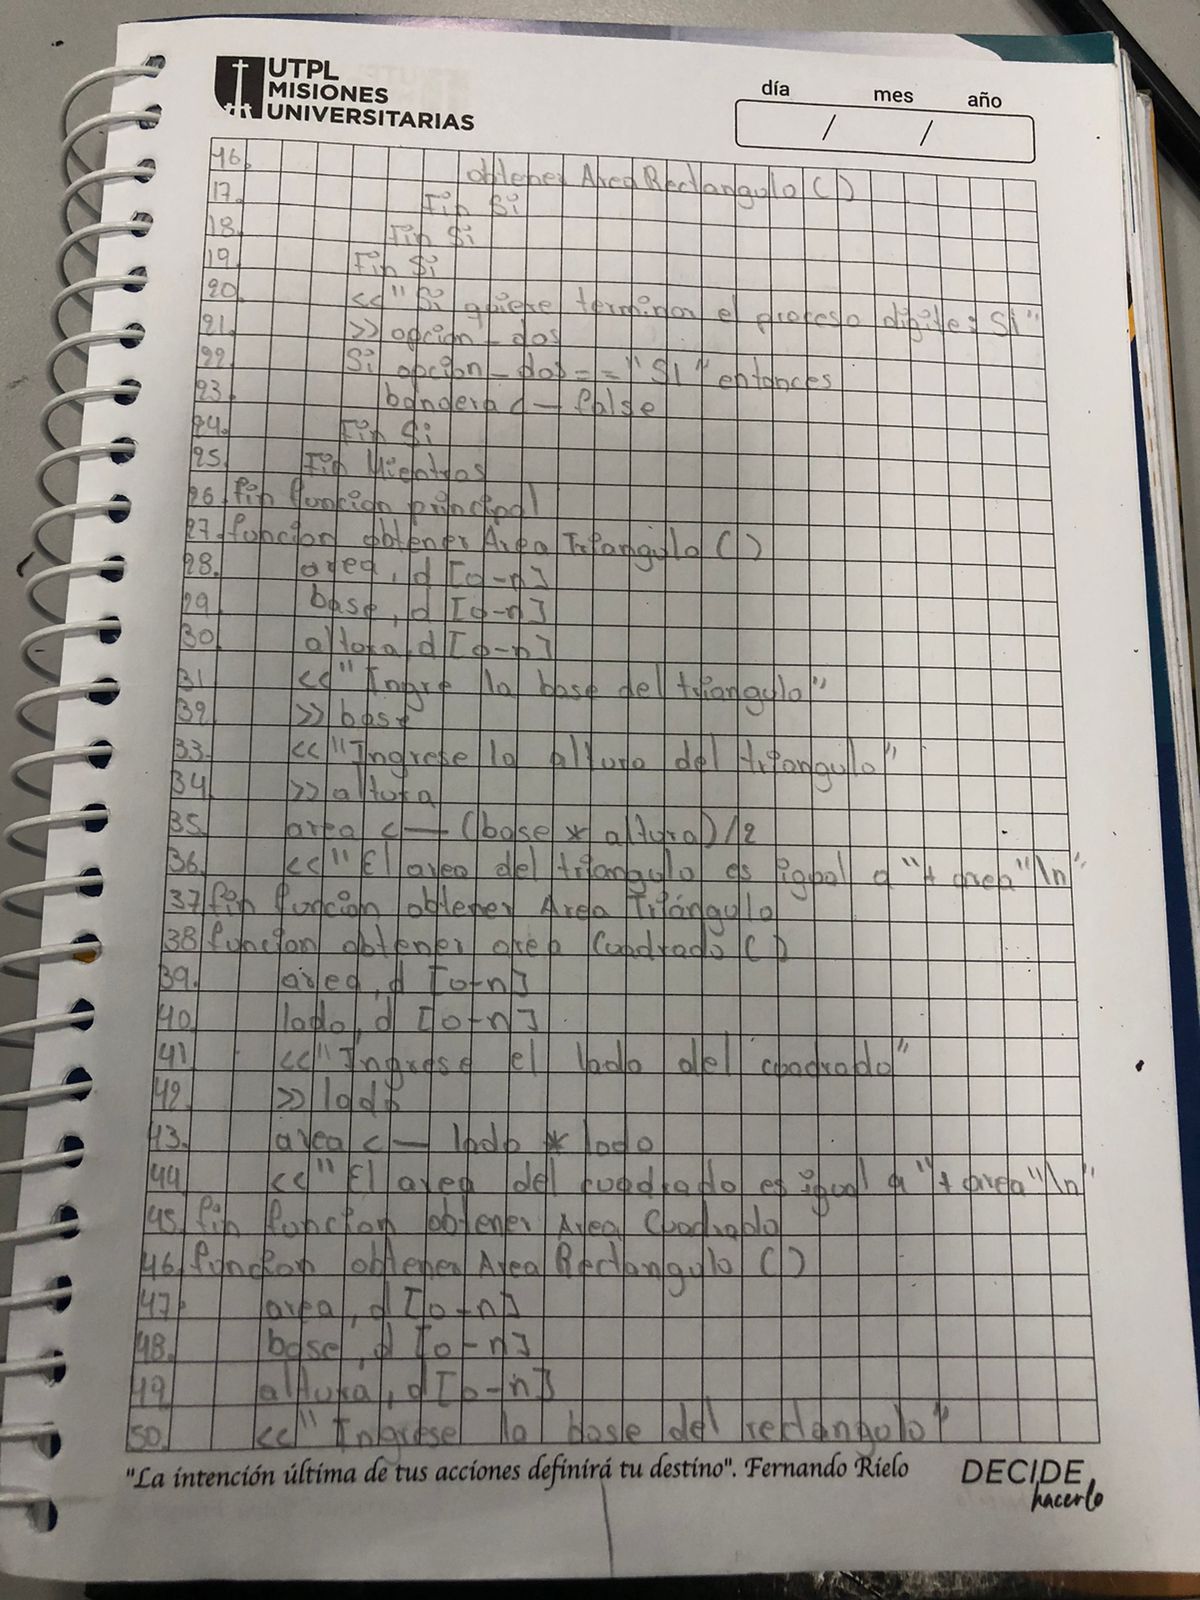 UTPL
MISIONES
UNIVERSITARIAS
día mes año
/ /
16. obtener Area Rectangulo ( )
17. Fin Si
18. Fin Si
19. Fin Si
20. << " Si quiere terminar el proceso digite: Si "
21. >> opcion_dos
22. Si opcion_dos == "SI" entonces
23. bandera <— false
24. Fin Si
25. Fin Mientras
26. fin funcion principal
27. funcion obtener Area Triangulo ( )
28. area, d [0-n]
29. base, d [0-n]
30. altura, d [0-n]
31 << " Ingre la base del triangulo"
32. >> base
33. << "Ingrese la altura del triangulo"
34. >> altura
35. area <— (base * altura)/2
36. << " El area del triangulo es igual a "+ area "\n"
37 fin funcion obtener Area Triángulo
38 funcion obtener area Cuadrado ( )
39. area, d [0-n]
40. lado, d [0-n]
41 << " Ingrese el lado del cuadrado"
42. >> lado
43. area <— lado * lado
44. << " El area del cuadrado es igual a "+ area "\n"
45. fin funcion obtener Area Cuadrado
46. funcion obtener Area Rectangulo ( )
47. area, d [0-n]
48. base, d [0-n]
49. altura, d [0-n]
50. << " Ingrese la base del rectangulo"
"La intención última de tus acciones definirá tu destino". Fernando Rielo
DECIDE
hacerlo